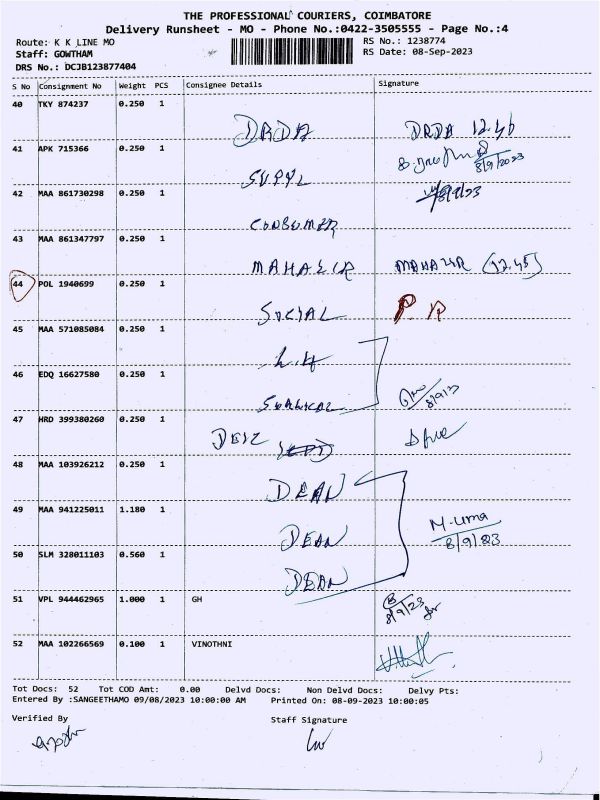 THE PROFESSIONAL COURIERS, COIMBATORE
Delivery Runsheet - MO - Phone No.:0422-3505555 - Page No.:4
Route: K K LINE MO
Staff: GOWTHAM
DRS No.: DCJB123877404
RS No.: 1238774
RS Date: 08-Sep-2023
S No Consignment No Weight PCS Consignee Details Signature
40 TKY 874237 0.250 1
DRDA DRDA 12.46
41 APK 715366 0.250 1
8/9/2023
SUPPL
42 MAA 861730298 0.250 1
8/9/23
CONSUMER
43 MAA 861347797 0.250 1
MAHALIR MAHALIR (12.45)
44 POL 1940699 0.250 1
SOCIAL P. R
45 MAA 571085084 0.250 1
46 EDQ 16627580 0.250 1
8/9/23
47 HRD 399380260 0.250 1
48 MAA 103926212 0.250 1
DEAN
49 MAA 941225011 1.180 1
M-uma
DEAN 8/9/23
50 SLM 328011103 0.560 1
DEAN
51 VPL 944462965 1.000 1 GH
8/9/23
52 MAA 102266569 0.100 1 VINOTHNI
Tot Docs: 52 Tot COD Amt: 0.00 Delvd Docs: Non Delvd Docs: Delvy Pts:
Entered By :SANGEETHAMO 09/08/2023 10:00:00 AM Printed On: 08-09-2023 10:00:05
Verified By Staff Signature